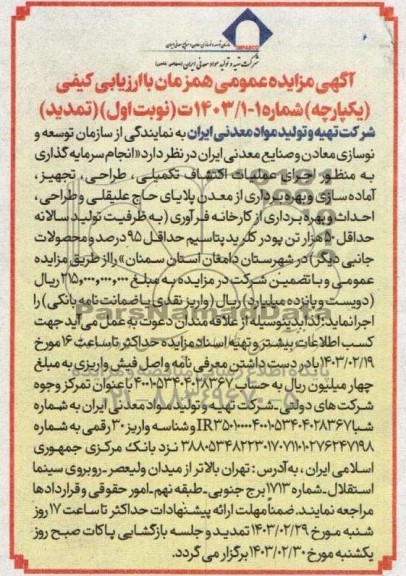 IMPASCO
شرکت تهیه و تولید مواد معدنی ایران (سهامی خاص)
آگهی مزایده عمومی همزمان با ارزیابی کیفی
(یکپارچه) شماره ۱-۱۴۰۳/۱ت (نوبت اول) (تمدید)
شرکت تهیه و تولید مواد معدنی ایران به نمایندگی از سازمان توسعه و
نوسازی معادن و صنایع معدنی ایران در نظر دارد «انجام سرمایه گذاری
به منظور اجرای عملیات اکتشاف تکمیلی، طراحی، تجهیز،
آماده سازی و بهره برداری از معدن پلایای حاج علیقلی و طراحی،
احداث و بهره برداری از کارخانه فرآوری (به ظرفیت تولید سالانه
حداقل ۵۰ هزار تن پودر کلرید پتاسیم حداقل ۹۵ درصد و محصولات
جانبی دیگر) در شهرستان دامغان استان سمنان» را از طریق مزایده
عمومی و با تضمین شرکت در مزایده به مبلغ ۲۱۵,۰۰۰,۰۰۰,۰۰۰ ریال
(دویست و پانزده میلیارد) ریال (واریز نقدی یا ضمانت نامه بانکی) را
اجرا نماید؛ لذا بدینوسیله از علاقه مندان دعوت به عمل می آید جهت
کسب اطلاعات بیشتر و تهیه اسناد مزایده حداکثر تا ساعت ۱۶ مورخ
۱۴۰۳/۰۲/۱۹ با در دست داشتن معرفی نامه و اصل فیش واریزی به مبلغ
چهار میلیون ریال به حساب ۴۰۰۱۰۵۳۴۰۴۰۲۸۳۶۷ با عنوان تمرکز وجوه
شرکت های دولتی - شرکت تهیه و تولید مواد معدنی ایران به شماره
شبا IR۳۵۰۱۰۰۰۰۴۰۰۱۰۵۳۴۰۴۰۲۸۳۶۷ و شناسه واریز ۳۰ رقمی به شماره
۳۸۸۰۵۳۴۸۲۲۳۰۱۷۰۷۱۱۰۱۰۲۷۶۲۴۷۱۹۸ نزد بانک مرکزی جمهوری
اسلامی ایران، به آدرس: تهران بالاتر از میدان ولیعصر - روبروی سینما
استقلال - شماره ۱۷۱۳ برج جنوبی - طبقه نهم - امور حقوقی و قراردادها
مراجعه نمایند. ضمناً مهلت ارائه پیشنهادات حداکثر تا ساعت ۱۷ روز
شنبه مورخ ۱۴۰۳/۰۲/۲۹ تمدید و جلسه بازگشایی پاکات صبح روز
یکشنبه مورخ ۱۴۰۳/۰۲/۳۰ برگزار می گردد.
ParsNamadData
۰۲۱-۸۸۳۴۹۶۷۰-۵